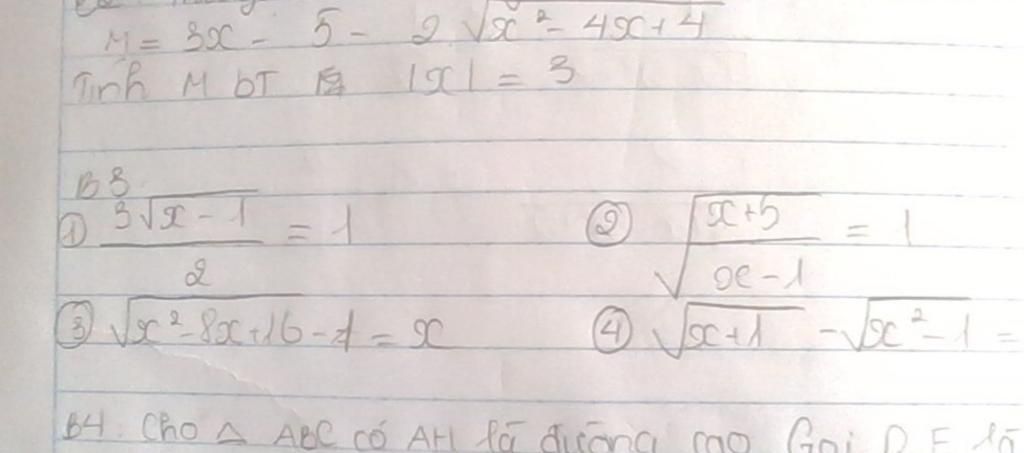 M = 3x - 5 - 2√(x² - 4x + 4)
Tính M bt |x| = 3
B3
① (3√(x - 1))/2 = 1 ② √((x+5)/(x-1)) = 1
③ √(x² - 8x + 16) - 1 = x ④ √(x+1) - √(x² - 1) =
B4. Cho △ ABC có AH là đường cao Gọi D E là